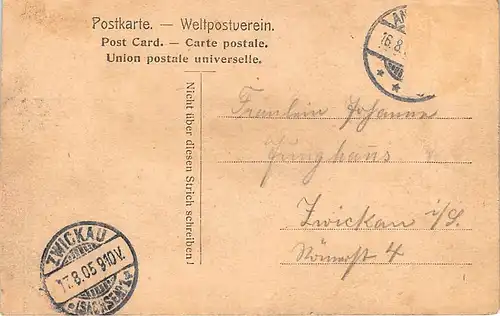 Postkarte. — Weltpostverein.
Post Card. — Carte postale.
Union postale universelle.
Nicht über diesen Strich schreiben!
AN
16.8.
Fräulein Johanne
Junghans
Zwickau i/S.
Römerst 4
ZWICKAU
17.8.05 9-10V.
(SACHSEN)